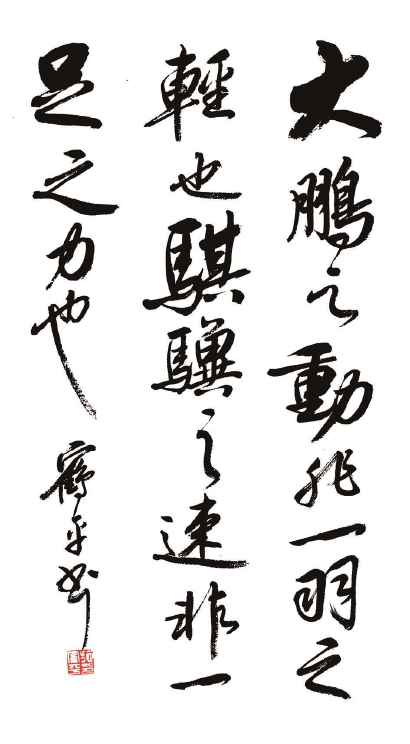 大鵬之動非一羽之
輕也騏驥之速非一
足之力也
鶴年书